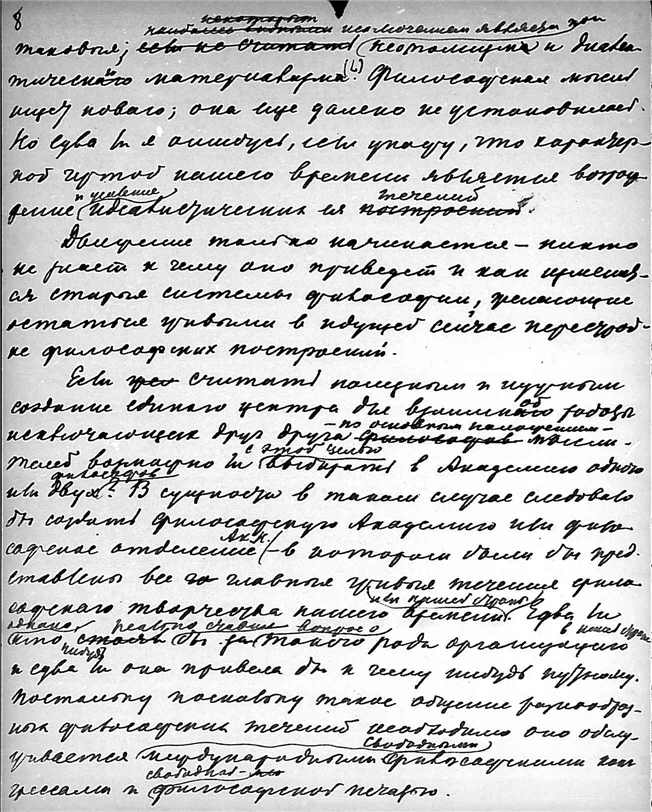 8
некоторым
наиболее видными исключением является зон
таковыя; если не считать (неотомизма и диалек-
тическаго материализма.(4) Философская мысль
ищет новаго; она еще далеко не установилась.
Но едва ли я ошибусь, если укажу, что характер-
ной чертой нашего времени является возрож-
дение и усиление идеалистических ея построений течений.
Движение только начинается – никто
не знает к чему оно приведет и как изменят-
ся старыя системы философии, желающия
остаться живыми в идущей сейчас перестрой-
ке философских построений.
Если считать полезным и нужным
создание единаго центра для взаимной работы
исключающих друг друга – по основным положениям –
философов мысли-
телей возможно ли с этой целью выбирать в Академию одного
или двух философов? В сущности в таком случае следовало
бы создать философскую Академию или фило-
софское отделение Ак. Н. – в котором были бы пред-
ставлены все главныя живыя течения фило-
софскаго творчества нашего времени или нашей страны. Едва ли
однако кто нибудь реально ставил вопрос
бы за такого рода организацию в нашей стране
и едва ли она привела бы к чему нибудь нужному.
Поскольку постольку такое общение разнообраз-
ных философских течений необходимо оно обслу-
живается международными свободными философскими кон-
грессами и свободной философской печатью.